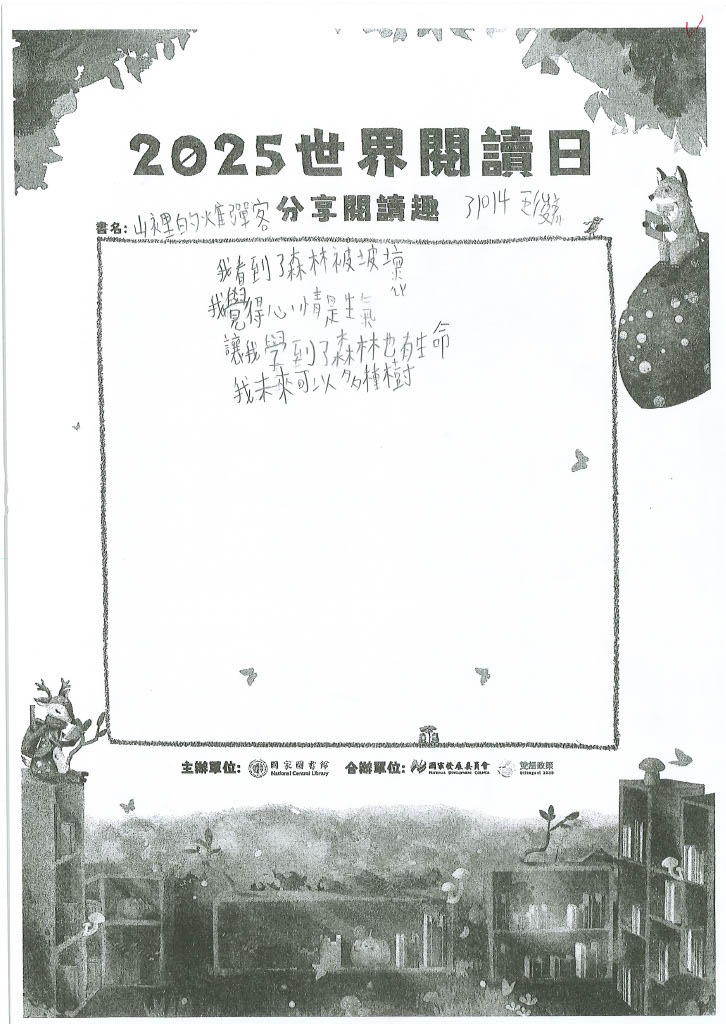 2025世界閱讀日
書名: 山裡的炸彈客 分享閱讀趣 31014
我看到了森林被坡壞
我覺得心情是生氣
讓我學到了森林也有生命
我未來可以多種樹
主辦單位: 國家圖書館 National Central Library 合辦單位: 國家發展委員會 NATIONAL DEVELOPMENT COUNCIL 雙語政策 Bilingual 2030